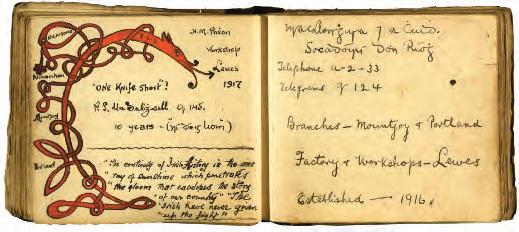 H.M. Prison
Workshop
Lewes
1917
Mountjoy
Portland
"One Knife Short"!
q 145.
10 years –
"The continuity of Irish History is the one
ray of sunshine which penetrates
the gloom that enveloped the story
of our country" "The
Irish have never given
up the fight!"
Don
Telephone q-2-33
Telegrams q 124
Branches – Mountjoy & Portland
Factory & Workshops – Lewes
Established — 1916.